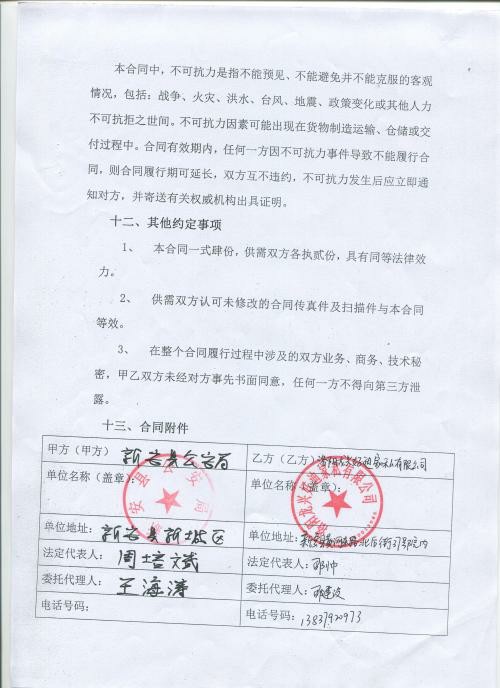 本合同中，不可抗力是指不能预见、不能避免并不能克服的客观
情况，包括：战争、火灾、洪水、台风、地震、政策变化或其他人力
不可抗拒之世间。不可抗力因素可能出现在货物制造运输、仓储或交
付过程中。合同有效期内，任何一方因不可抗力事件导致不能履行合
同，则合同履行期可延长，双方互不违约，不可抗力发生后应立即通
知对方，并寄送有关权威机构出具证明。
十二、其他约定事项
1、 本合同一式肆份，供需双方各执贰份，具有同等法律效
力。
2、 供需双方认可未修改的合同传真件及扫描件与本合同
等效。
3、 在整个合同履行过程中涉及的双方业务、商务、技术秘
密，甲乙双方未经对方事先书面同意，任何一方不得向第三方泄
露。
十三、合同附件
甲方（甲方） 新安县公安局
乙方（乙方） 家私有限公司
单位名称（盖章）：
单位名称（盖章）：
单位地址：新安县新城区
单位地址：
法定代表人：周培文斌
法定代表人：邓帅
委托代理人：王海涛
委托代理人：邓建波
电话号码：
电话号码：13837920973